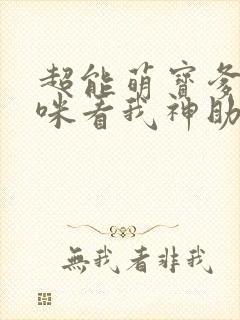 超能萌寶爹
咪看我神助
無我者非我